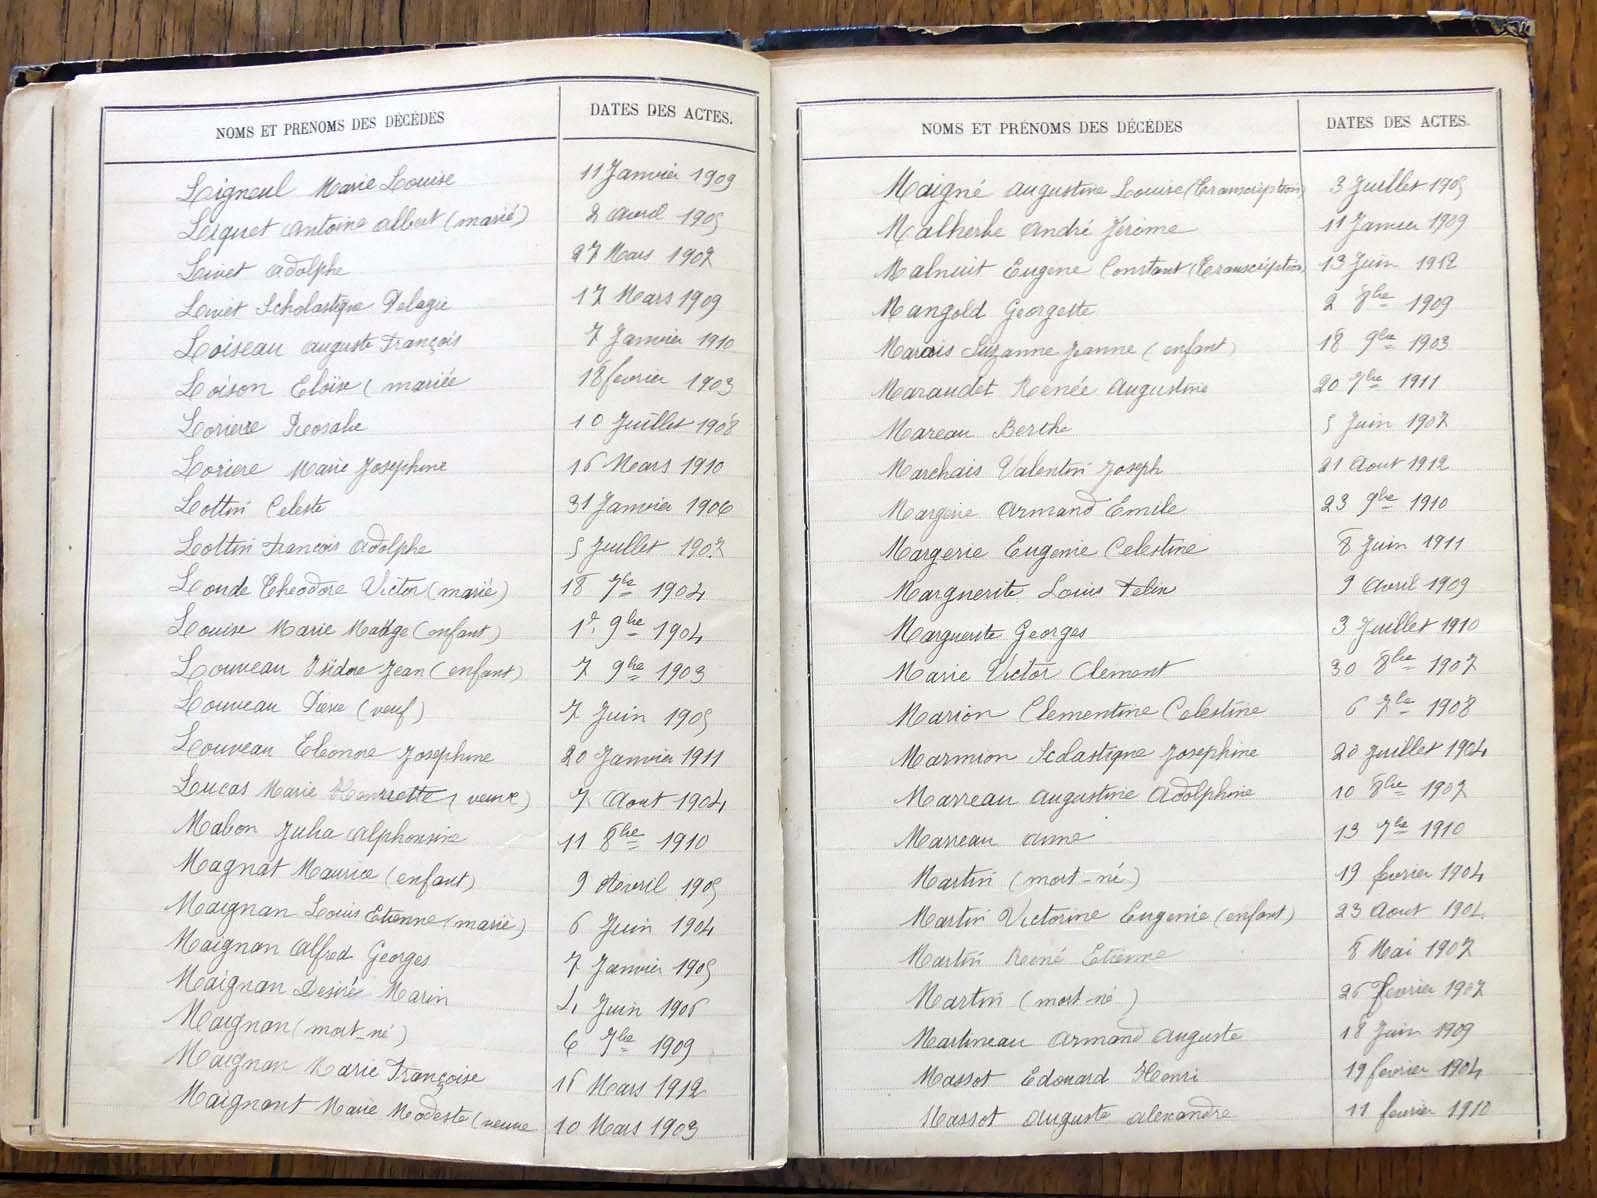 NOMS ET PRENOMS DES DÉCÉDÉS DATES DES ACTES.
Ligneul Marie Louise 11 Janvier 1909
Liquet Antoine Albert (marié) 2 Avril 1905
Livet Adolphe 27 Mars 1907
Livet Scholastique Pelagie 17 Mars 1909
Loiseau Auguste François 7 Janvier 1910
Loison Eloïse (mariée 18 fevrier 1903
Loriere Rosalie 10 Juillet 1908
Loriere Marie Josephine 16 Mars 1910
Lottin Celeste 31 Janvier 1906
Lottin Francois Adolphe 5 Juillet 1907
Loude Theodore Victor (marié) 18 7bre 1904
Louise Marie Madge (enfant) 1er 9bre 1904
Louveau Isidore Jean (enfant) 7 9bre 1903
Louveau Pierre (veuf) 7 Juin 1905
Louveau Eleonore Josephine 20 Janvier 1911
Lucas Marie Henriette (veuve) 7 Aout 1904
Mabon Julia Alphonsine 11 8bre 1910
Magnat Maurice (enfant) 9 Avril 1905
Maignan Louis Etienne (marié) 6 Juin 1904
Maignan Alfred Georges 7 Janvier 1905
Maignan Desiré Marin 4 Juin 1906
Maignan (mort-né) 6 7bre 1909
Maignan Marie Françoise 16 Mars 1912
Maignant Marie Modeste (veuve 10 Mars 1903
NOMS ET PRÉNOMS DES DÉCÉDES DATES DES ACTES.
Maigné Augustine Louise (Transcription) 3 Juillet 1905
Malherbe André Jérôme 11 Janvier 1909
Malnuit Eugène Constant (Transcription) 13 Juin 1912
Mangold Georgette 2 8bre 1909
Marais Suzanne Jeanne (enfant) 18 9bre 1903
Maraudet Renée Augustine 20 7bre 1911
Mareau Berthe 5 Juin 1907
Marchais Valentin Joseph 21 Aout 1912
Margerie Armand Emile 23 9bre 1910
Margerie Eugenie Celestine 8 Juin 1911
Marguerite Louis Felix 9 Avril 1909
Marguerite Georges 3 Juillet 1910
Marie Victor Clement 30 8bre 1907
Marion Clementine Celestine 6 7bre 1908
Marmion Scolastique Josephine 20 Juillet 1904
Marreau Augustine Adolphine 10 8bre 1907
Marreau Anne 13 7bre 1910
Martin (mort-né) 19 fevrier 1904
Martin Victorine Eugenie (enfant) 23 Aout 1904
Martin René Etienne 8 Mai 1907
Martin (mort-né) 26 fevrier 1907
Martineau Armand Auguste 18 Juin 1909
Massot Edouard Henri 19 fevrier 1904
Massot Auguste Alexandre 11 fevrier 1910